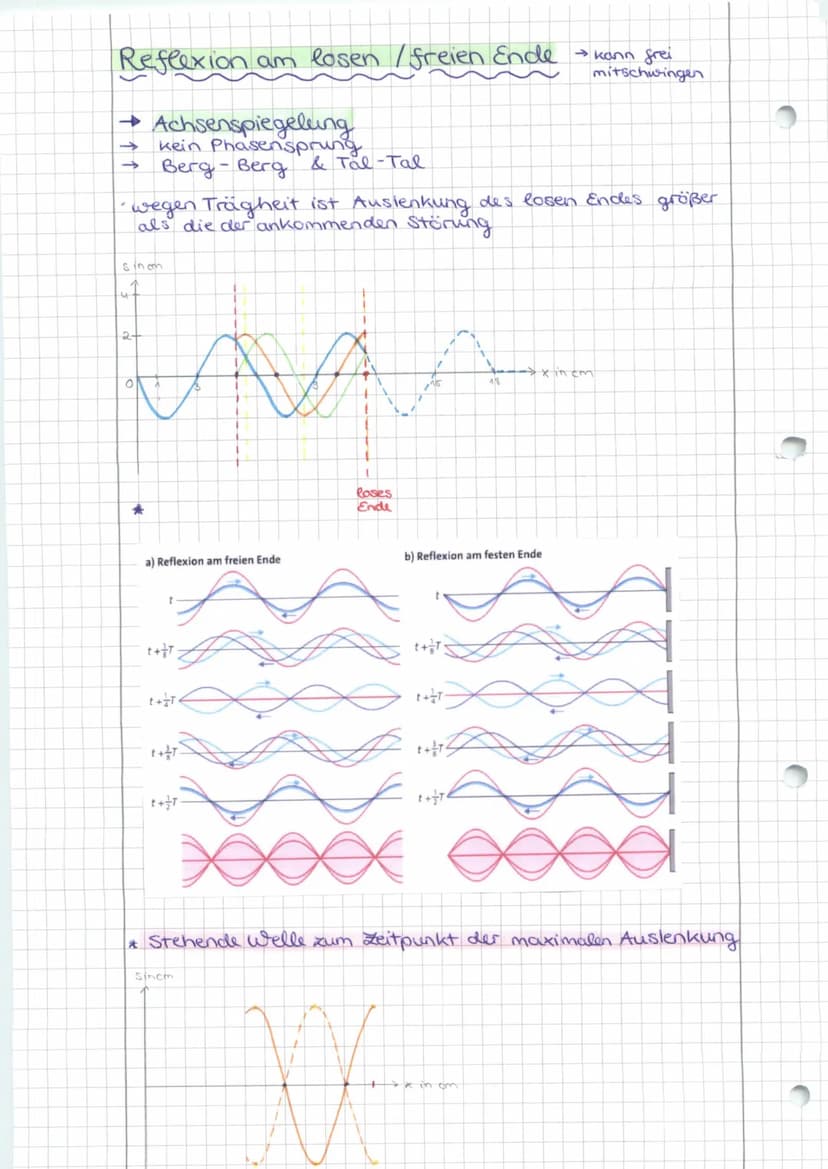 Reflexion am losen / freien Ende → kann frei
mitschwingen
→ Achsenspiegelung
→ kein Phasensprung
→ Berg-Berg & Tal-Tal
· wegen Trägheit ist Auslenkung des losen Endes größer
als die der ankommenden Störung
s in cm
4
2
0 1 3 9 15 18 x in cm
loses
Ende
*
a) Reflexion am freien Ende
b) Reflexion am festen Ende
t
t
t+1/8T
t+1/8T
t+1/4T
t+1/4T
t+3/8T
t+3/8T
t+1/2T
t+1/2T
* Stehende Welle zum Zeitpunkt der maximalen Auslenkung
s in cm
x in cm